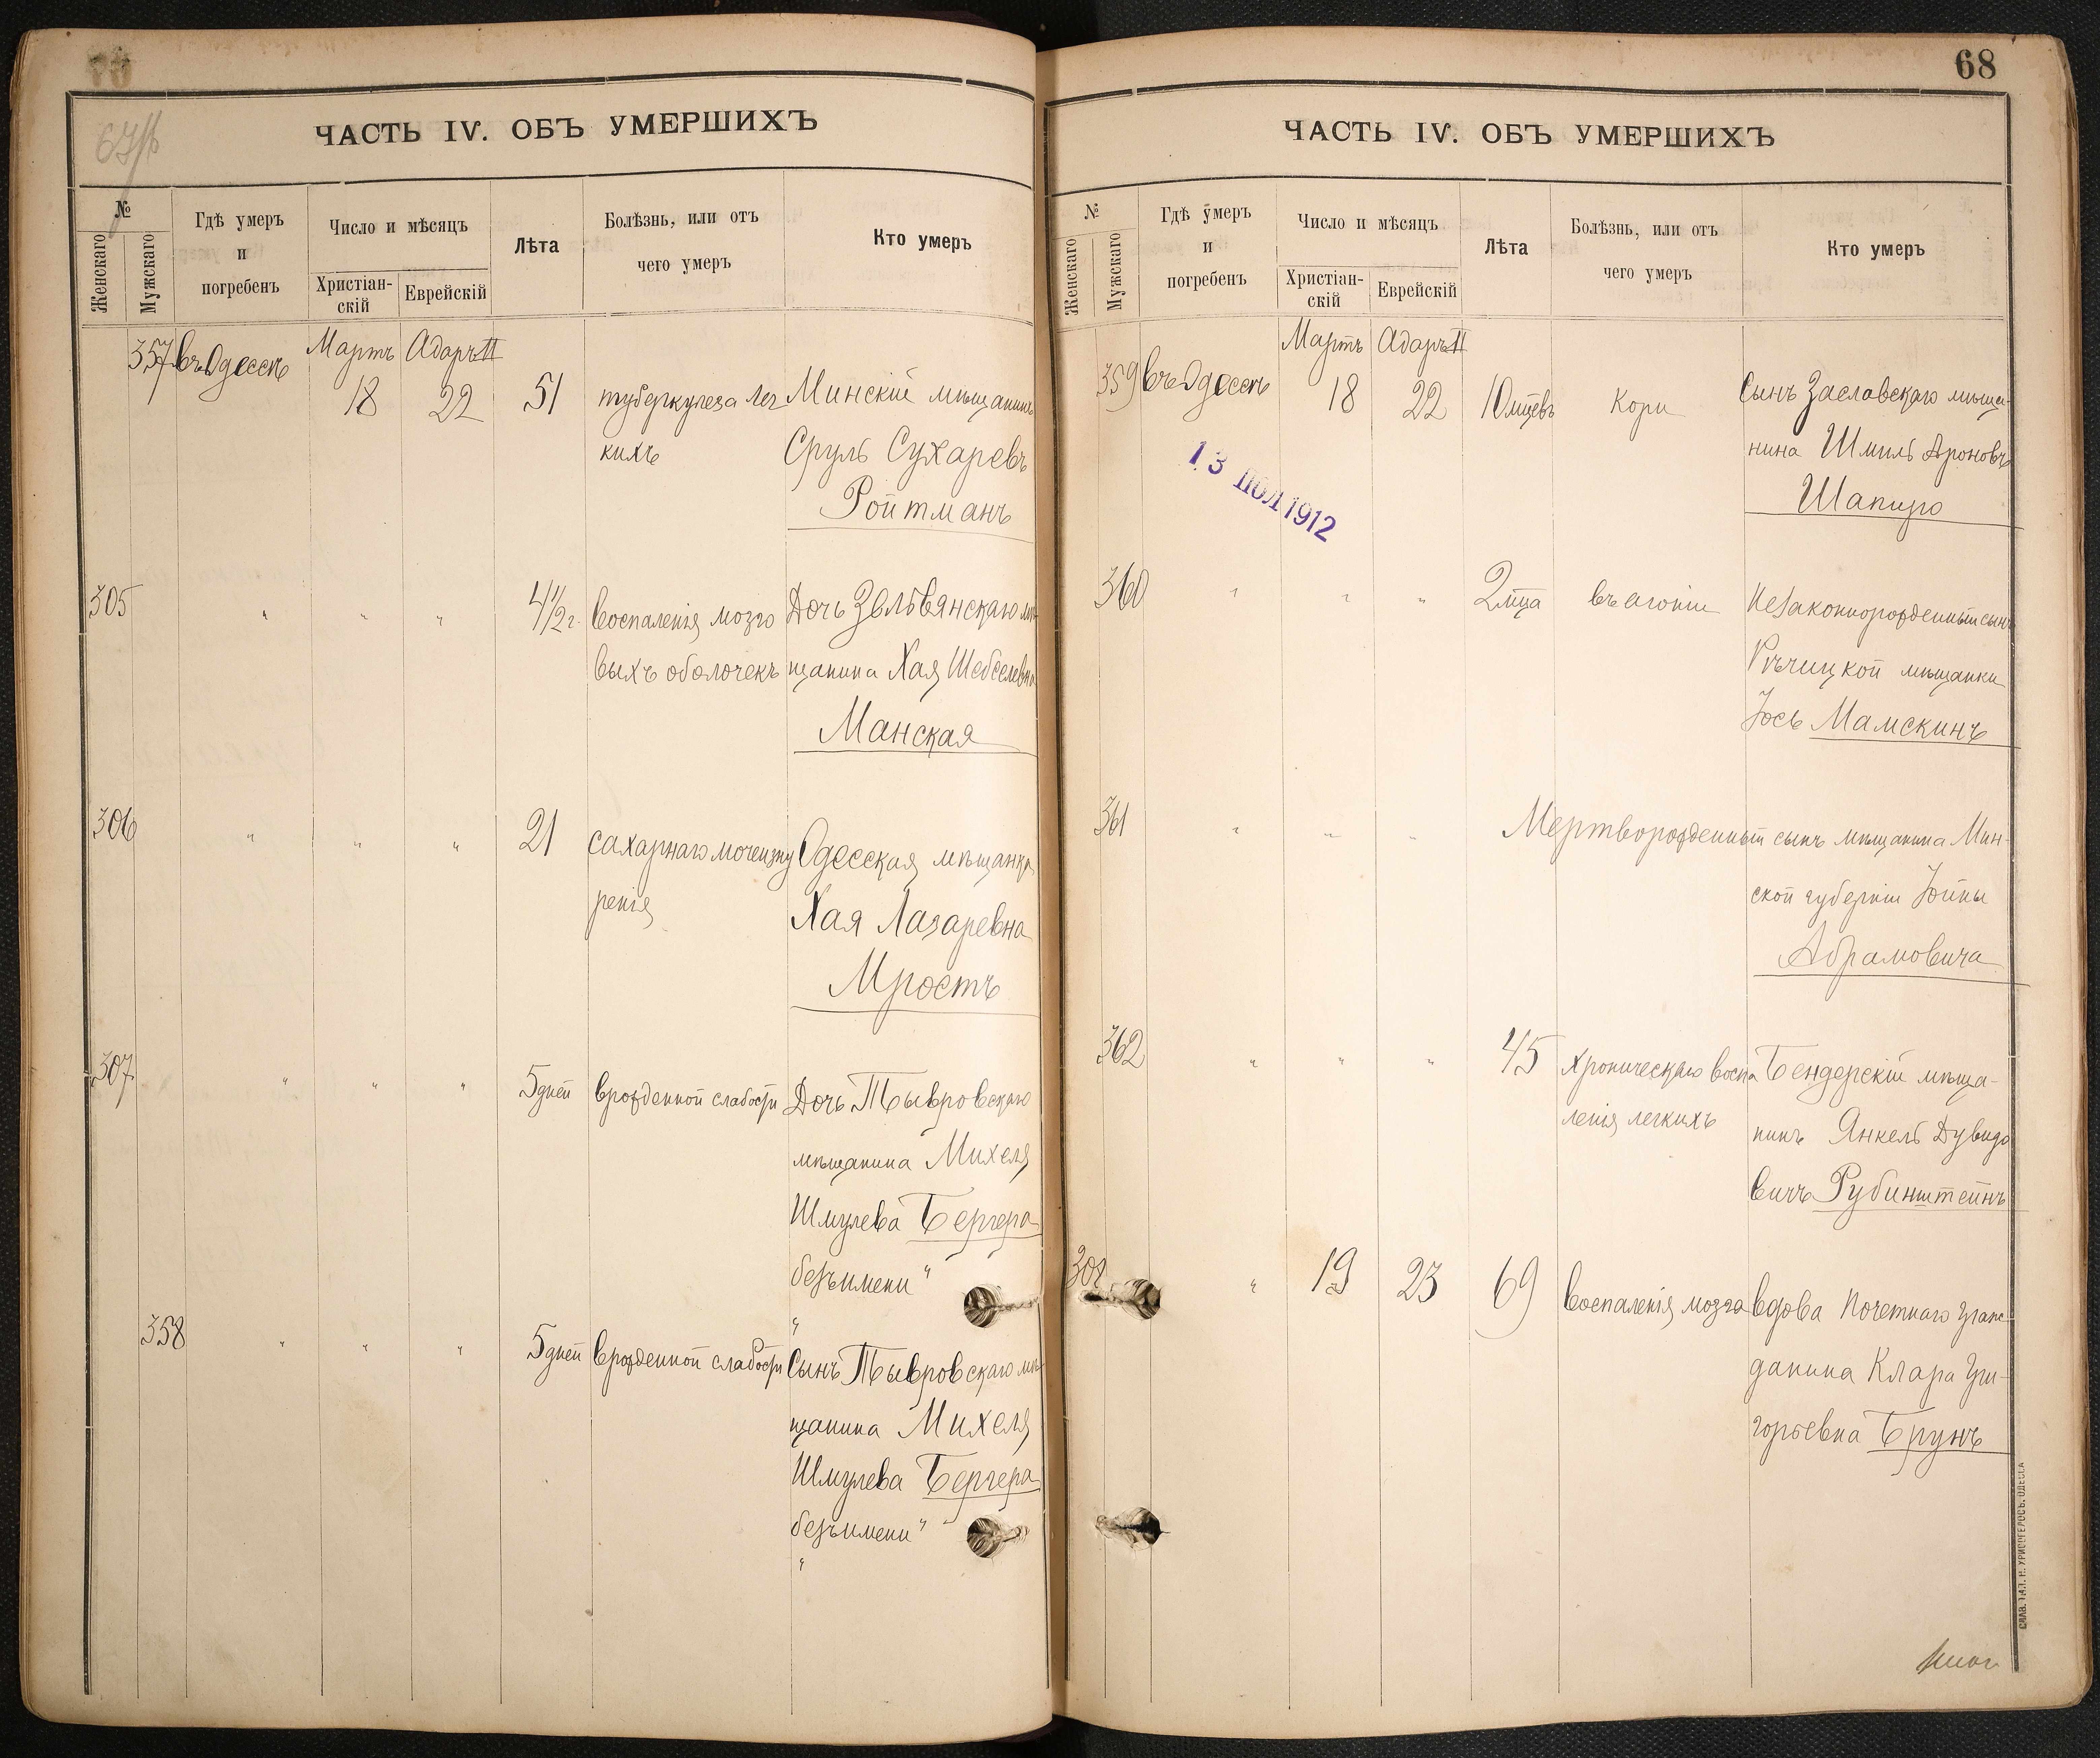 67/б
ЧАСТЬ IV. ОБЪ УМЕРШИХЪ
№
Женскаго
Мужскаго
Гдѣ умеръ
и
погребенъ
Число и мѣсяцъ
Христіан-
скій
Еврейскій
Лѣта
Болѣзнь, или отъ
чего умеръ
Кто умеръ
357 въ Одессѣ Мартъ Адаръ II
18 22 51 туберкулеза лег Минскій мѣщанинъ
кихъ Сруль Сухаревъ
Ройтманъ
305 " " " 4 1/2 г. воспаленія мозго Дочь Зельвянскаго мѣ-
выхъ оболочекъ щанина Хая Шебселевна
Манская
306 " " " 21 сахарнаго мочеизну Одесская мѣщанка
ренія Хая Лазаревна
Мростъ
307 " " " 5 дней врожденной слабости Дочь Тывровскаго
мѣщанина Михеля
Шмулева Бергера
безъ имени "
"
358 " " " 5 дней врожденной слабости Сынъ Тывровскаго мѣ-
щанина Михеля
Шмулева Бергера
безъ имени "
"
68
ЧАСТЬ IV. ОБЪ УМЕРШИХЪ
№
Женскаго
Мужскаго
Гдѣ умеръ
и
погребенъ
Число и мѣсяцъ
Христіан-
скій
Еврейскій
Лѣта
Болѣзнь, или отъ
чего умеръ
Кто умеръ
359 въ Одессѣ Мартъ Адаръ II
18 22 10 мцевъ Кори Сынъ Заславскаго мѣща-
нина Шмиль Ароновъ
Шапиро
13 ІЮЛ 1912
360 " " " 2 мца въ агоніи Незаконнорожденный сынъ
Рѣчицкой мѣщанки
Іось Мамскинъ
361 " " " Мертворожденный сынъ мѣщанина Мин-
ской губерніи Іойны
Абрамовича
362 " " " 45 хроническаго воспа Бендерскій мѣща-
ленія легкихъ нинъ Янкель Дувидо
вичъ Рубинштейнъ
308 " 19 23 69 воспаленія мозга вдова Почетнаго граж-
данина Клара Гри-
горьевна Брунъ